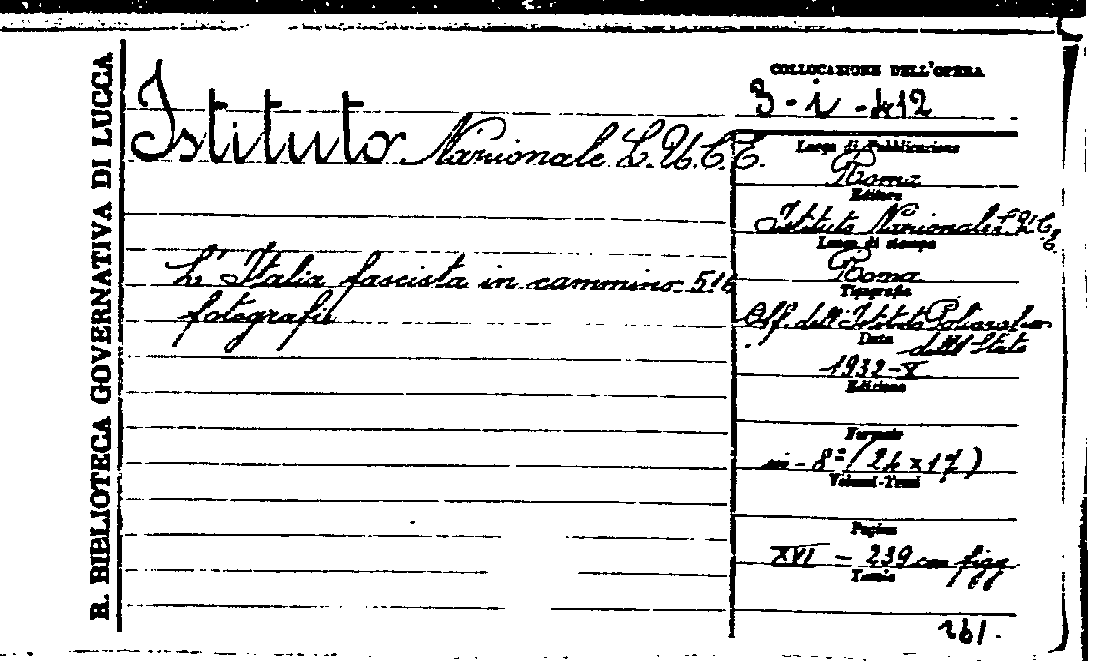 R. BIBLIOTECA GOVERNATIVA DI LUCCA
Istituto Nazionale L.U.C.E.
L'Italia fascista in cammino. 516
fotografie
COLLOCAZIONE DELL'OPERA
3 - i - 412
Luogo di Pubblicazione
Roma
Editore
Istituto Nazionale L.U.C.E.
Luogo di stampa
Roma
Tipografia
Off. dell'Istituto Poligrafico
dello Stato
Data
1932 - X
Edizione
Formato
in - 8º (24 x 17)
Volumi-Tomi
Pagine
XVI - 239 con figg
Tomia
261.